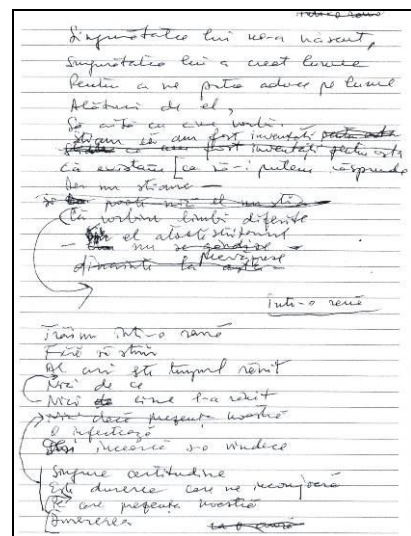 Singurătatea lui ne-a născut,
Singurătatea lui a creat lumea
Pentru a ne putea aduce pe lume
Alături de el,
Să aibă cu cine vorbi.
Știam că am fost inventați pentru asta
Că existăm [ca să-i putem răspunde
Dar nu știam —
și poate nici el nu știa
Că vorbim limbi diferite
el atotștiutorul
— nu se gândise
dinainte la asta
Într-o rană
Trăim într-o rană
Fără să știm
Al cui este trupul rănit
Nici de ce
Nici cine l-a rănit
Nici dacă prezența noastră
O infectează
încearcă s-o vindece
Singura certitudine
Este durerea care ne înconjoară
Pe care prezența noastră